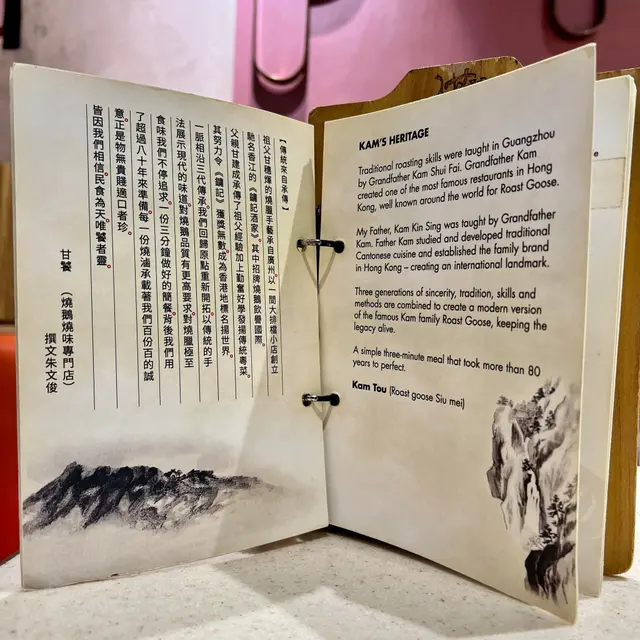 【傳統來自承傳】
祖父甘穗煇的燒臘手藝承自廣州。以一間大排檔小店創立
馳名香江的《鏞記酒家》。其中招牌燒鵝飲譽國際。
父親甘建成承傳了祖父經驗加上勤奮好學發揚傳統粵菜。
其努力令《鏞記》獲獎無數。成為香港地標名揚世界。
一脈相沿三代傳承我們回歸原點重新開拓。以傳統的手
法展示現代的味道。對燒鵝品質有更高要求。對燒臘極至
食味我們不停追求。一份三分鐘做好的簡餐。背後我們用
了超過八十年來準備。每一份燒滷承載著我們百份百的誠
意。正是物無貴賤適口者珍。
皆因我們相信。民食為天。唯饕者靈。
甘饕 （燒鵝燒味專門店）
撰文朱文俊
KAM'S HERITAGE
Traditional roasting skills were taught in Guangzhou
by Grandfather Kam Shui Fai. Grandfather Kam
created one of the most famous restaurants in Hong
Kong, well known around the world for Roast Goose.
My Father, Kam Kin Sing was taught by Grandfather
Kam. Father Kam studied and developed traditional
Cantonese cuisine and established the family brand
in Hong Kong – creating an international landmark.
Three generations of sincerity, tradition, skills and
methods are combined to create a modern version
of the famous Kam family Roast Goose, keeping the
legacy alive.
A simple three-minute meal that took more than 80
years to perfect.
Kam Tou (Roast goose Siu mei)